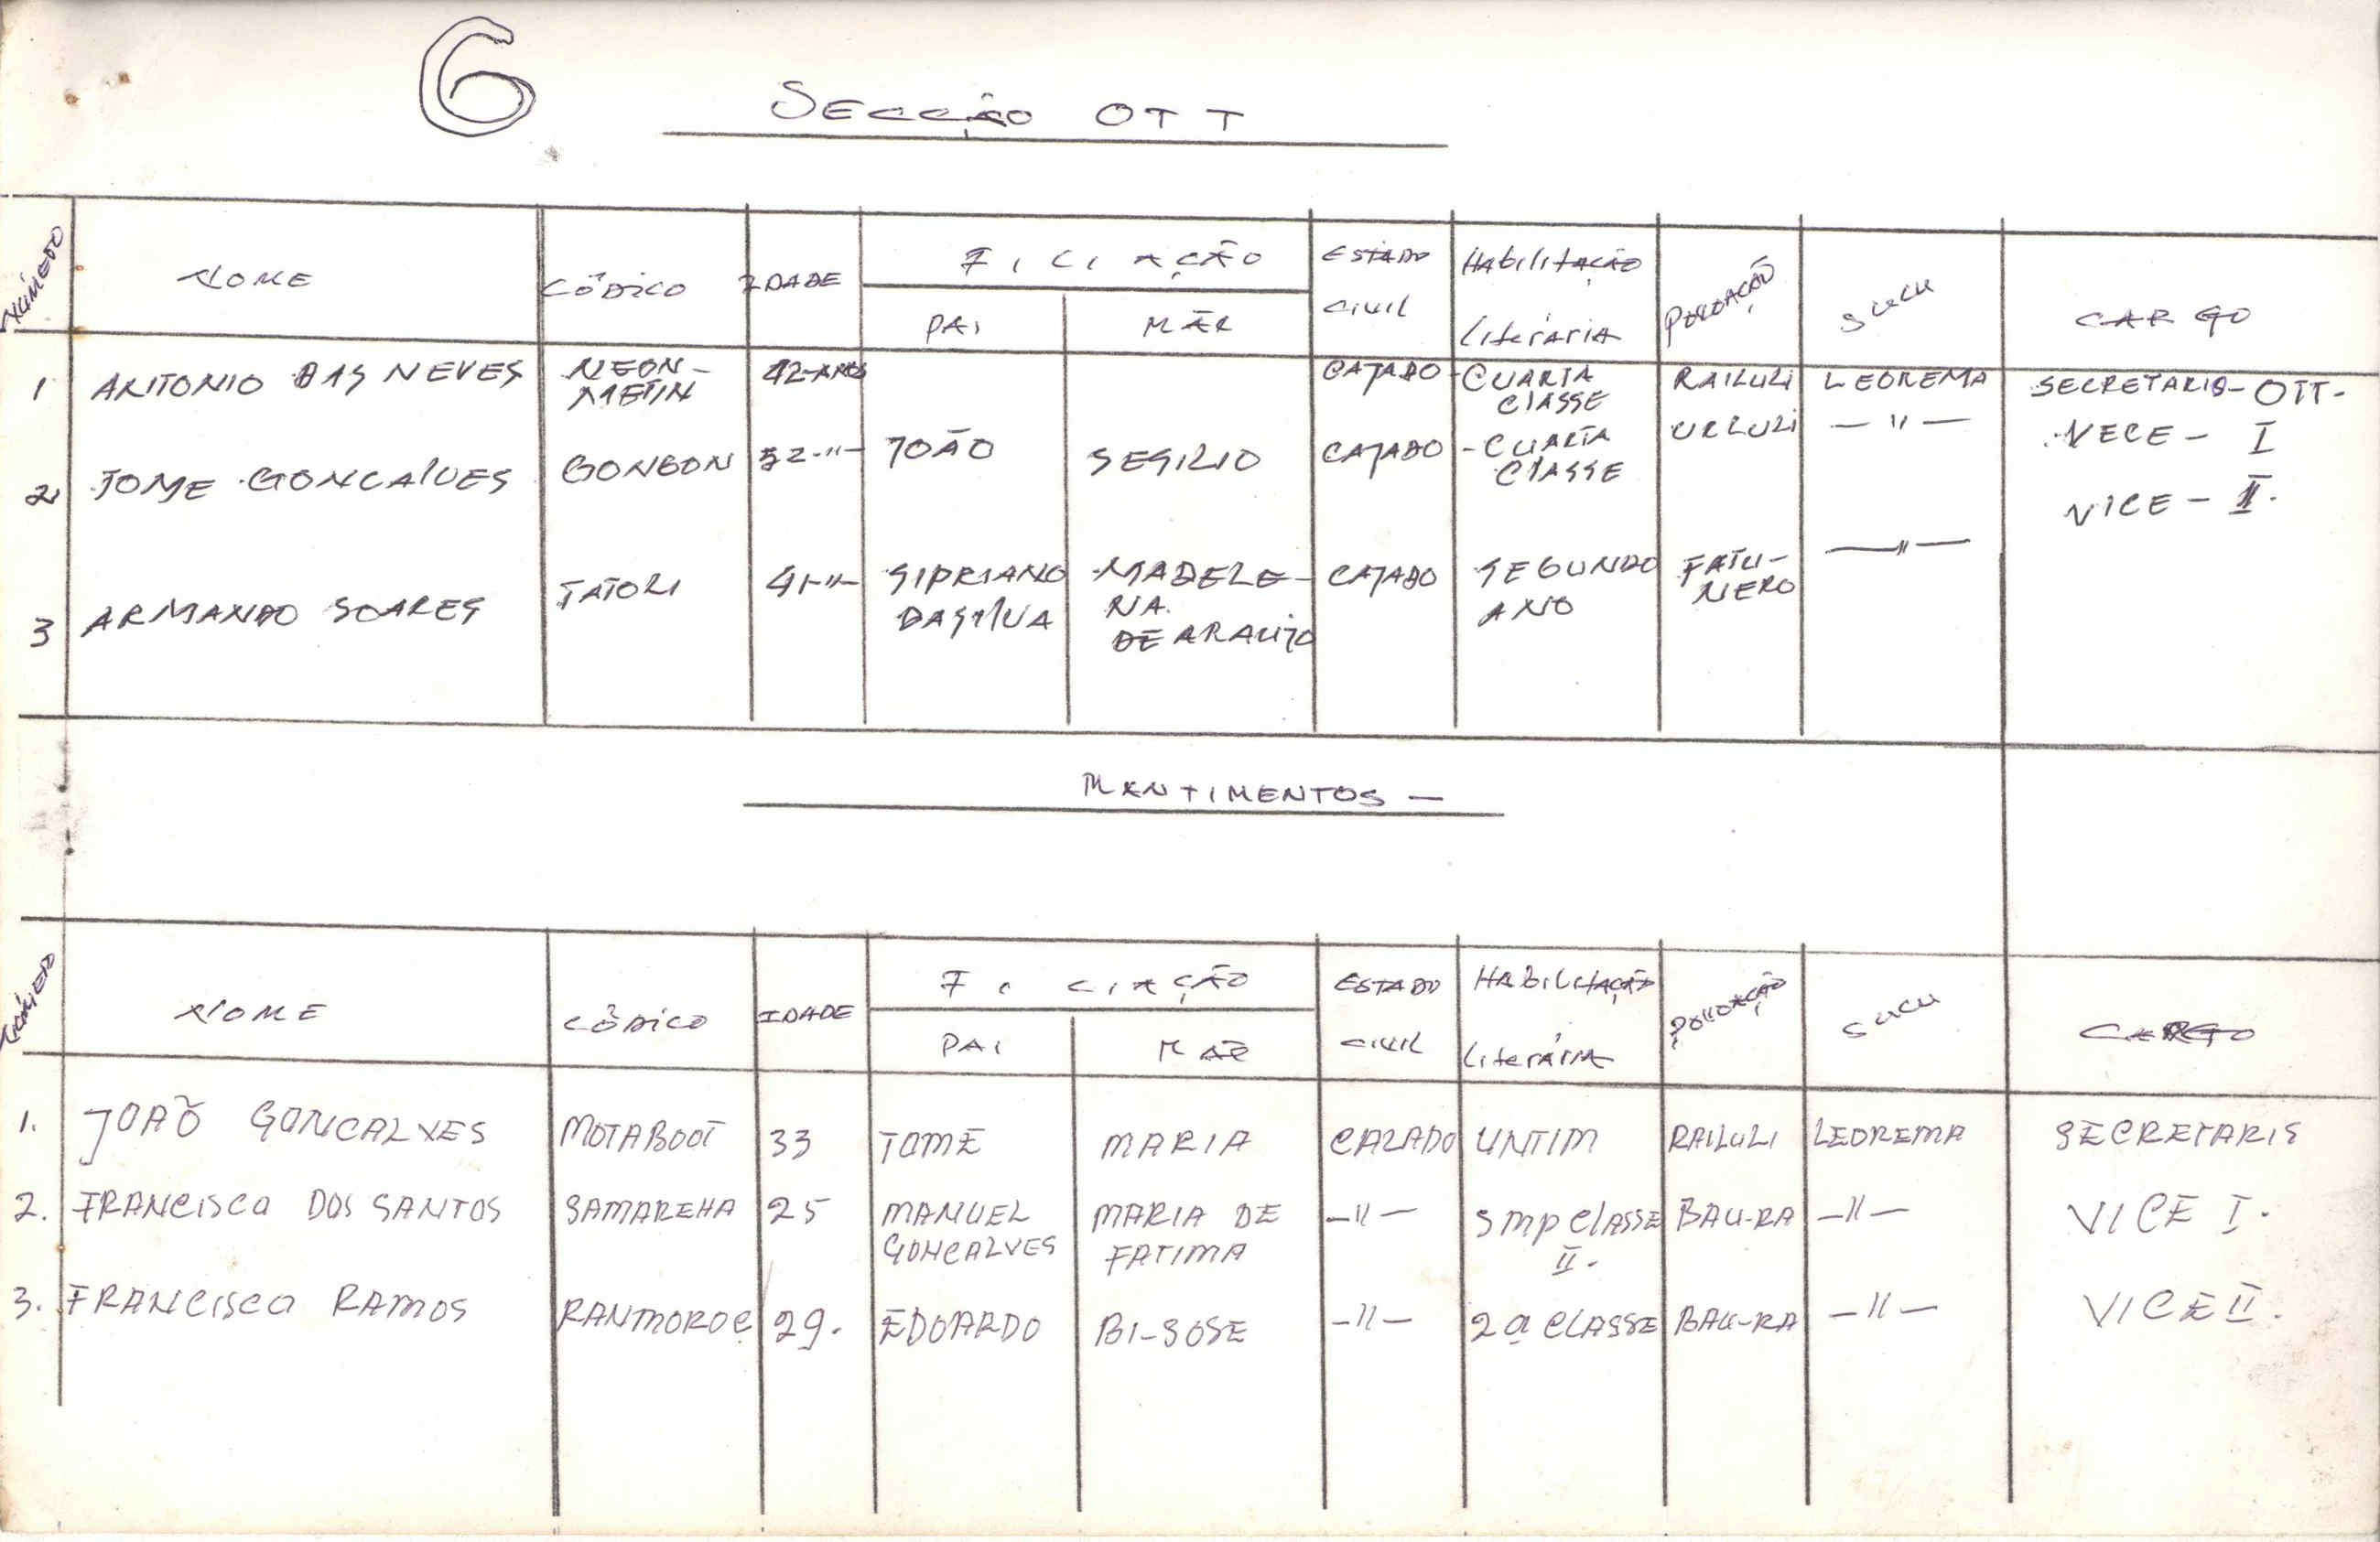 6
SECCÃO OTT
NÚMERO NOME CÓDICO IDADE FILIAÇÃO ESTADO CIVIL Habilitação Literária POVOAÇÃO Sucu CARGO
PAI MÃE
1 ANTONIO DAS NEVES NEON-METIN 42-ANOS CAJADO CUARTA CLASSE RAILULI LEOREMA SECRETARIO-OTT-
2 TOME GONCALVES GONGON 52-"- JOÃO SEGILIO CAJADO -CUARTA CLASSE URLULI -"- VECE - I
3 ARMANDO SOARES TATORI 41-"- SIPRIANO DASILVA MADELE-NA. DE ARAUJO CAJADO SEGUNDO ANO FATU-NERO -"- VICE - II.
MANTIMENTOS -
NÚMERO NOME CÓDICO IDADE FILIAÇÃO ESTADO CIVIL HABILITAÇÃO Literária POVOAÇÃO Sucu CARGO
PAI MÃE
1. JOAÕ GONCALVES MOTABOOT 33 TOME MARIA CAZADO UNTIM RAILULI LEOREMA SECRETARIS
2. FRANCISCO DOS SANTOS SAMAREHA 25 MANUEL GONCALVES MARIA DE FATIMA -"- SMP CLASSE II. BAU-RA -"- VICE I.
3. FRANCISCO RAMOS RANMOROC 29. EDOARDO BI-SOSE -"- 2a CLASSE BAU-RA -"- VICE II.